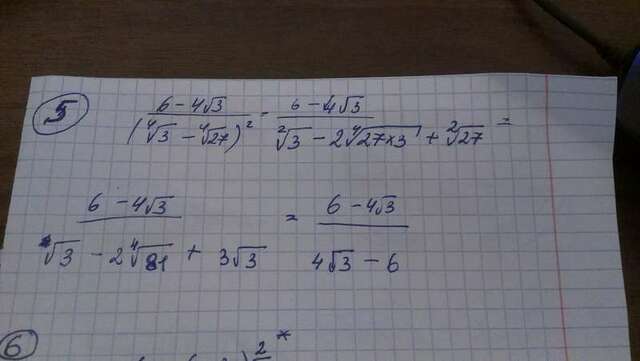 5 (6 − 4√3)/(⁴√3 − ⁴√27)² = (6 − 4√3)/(²√3 − 2⁴√(27×3) + ²√27) =
(6 − 4√3)/(√3 − 2⁴√81 + 3√3) = (6 − 4√3)/(4√3 − 6)
6